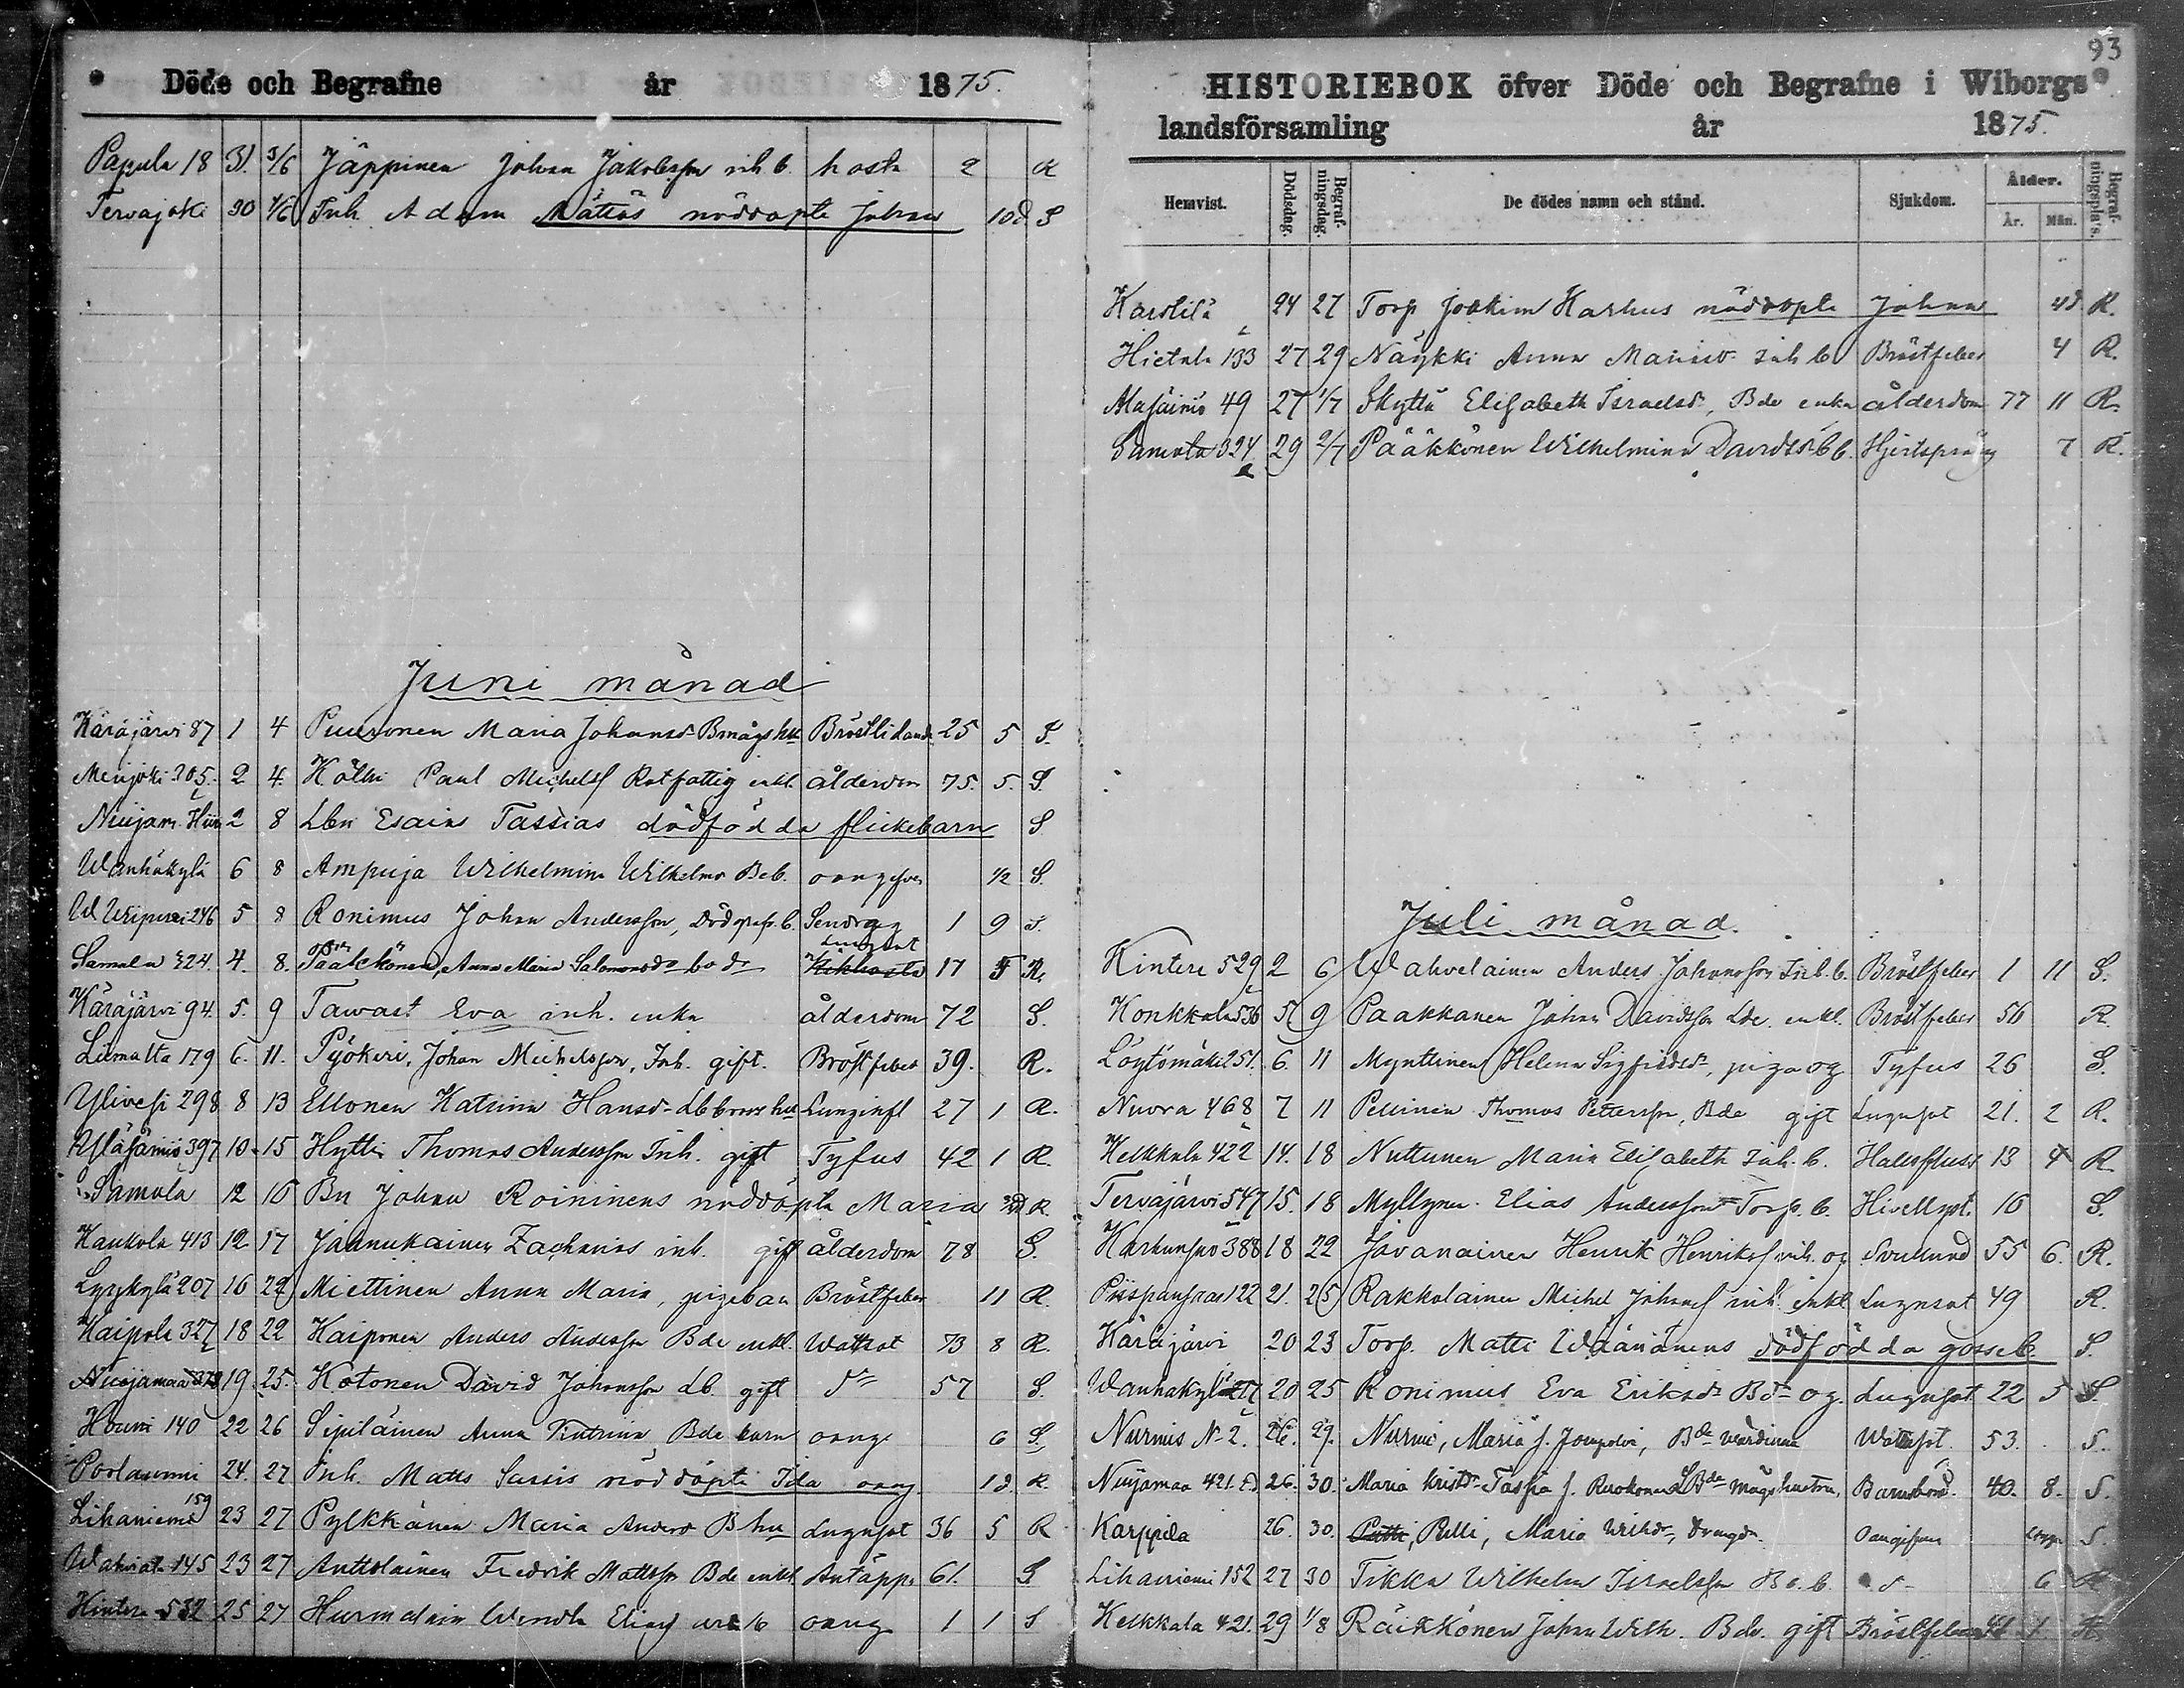 Döde och Begrafne år 1875.
Papula 18 31. 3/6 Jäppinen Johan Jakobsson inh b. hosta 2 R
Tervajoki 30 1/6 Inh. Adam Mättös nöddöpte Johan 10 d. S
Juni månad
Käräjärvi 87 1 4 Puuronen Maria Johansd. Bmågshu Bröstlidande 25 5 S.
Menjoki 305. 2 4. Kölhi Paul Michelss Rotfattig enkl. ålderdom 75. 5. S.
Nuijam. 2 8 Lbn Esaias Tassias dödfödda flickebarn S
Wanhäkylä 6 8 Ampuja Wilhelmina Wilhelmsd Beb. oangifven 1/2 S.
246 5 8 Ronimus Johan Andersson, b. Sendrag 1 9 S.
Samola 324. 4. 8. Pääkkönen, Anna Maria Salomonsdr bo dr Lungsot Kikhosta 17 R.
Käräjärvi 94. 5. 9 Tawast Eva inh. enka ålderdom 72 S.
Liimatta 179 6. 11. Pyökeri, Johan Michelsson, Inh. gift. Bröstfeber 39. R.
Ylivesi 298 8 13 Ellonen Katrina Hansd. Lunginfl 27 1 R.
Yläsäiniö 397 10 15 Hytti Thomas Andersson Inh. gift Tyfus 42 1 R.
Samola 12 16 Bn Johan Roininens nöddöpta Maria R.
Kaukola 413 12 17 Jaanukainen Zacharias inh. gift ålderdom 78 S.
Lyykylä 207 16 22 Miettinen Anna Maria, pigebarn Bröstfeber 11 R.
Kaipola 327 18 22 Kaiponen Anders Andersson Bde enkl. Wattsot 73 8 R.
Nuijamaa 373 19 25. Kotonen David Johansson Lb. gift do 57 S.
Houni 140 22 26 Sipiläinen Anna Katrina Bde barn oang. 6 S.
24. 27 Inh. Matts Sassis nöddöpte Ida oang. 1 d. R
Lihaniemi 159 23 27 Pylkkänen Maria Andersd B hu Lugnsot 36 5 R
Wahviala 145 23 27 Anttolainen Fredrik Mattsson Bde enkl. Antäpp. 61. S
Kintere 532 25 27 Hurmalain Wendla Eliasd oang. 1 1 S
93
HISTORIEBOK öfver Döde och Begrafne i Wiborgs
landsförsamling år 1875.
Hemvist. Dödsdag. Begrafningsdag. De dödes namn och stånd. Sjukdom. Ålder. År. Mån. Begrafningsplats.
Karstilä 24 27 Torp Joakim Karhus nöddöpte Johan 4 d. R.
Hietala 133 27 29 Näykki Anna Mariasd. inh b Bröstfeber 4 R.
Alasäiniö 49 27 1/7 Skyttä Elisabeth Israelsd., Bde enka ålderdom 77 11 R.
Samola 324 29 2/7 Pääkkönen Wilhelmina Davidsd. Bb. Hjertspräng 7 R.
Juli månad.
Kintere 529 2 6 Wahvelainen Anders Johansson Inh. b. Bröstfeber 1 11 S.
Konkkala 536 5 9 Paakkanen Johan Davidsson Lde. enkl. Bröstfeber 56 R
Löytömäki 251. 6. 11 Mynttinen Helena Sigfridsdr, piga og Tyfus 26 S.
Nuora 468 7 11 Pellinen Thomas Pettersson, Bde gift Lugnsot 21. 2 R.
Kelkkala 422 14. 18 Nuttunen Maria Elisabeth inh. b. Halsfluss 13 4 R.
Tervajärvi 547 15. 18 Myllynen Elias Andersson Torp. b. 10 S.
Karhunsuo 388 18 22 Javanainen Henrik Henrikss inh. og Svullnad 55 6. R.
Piispansaari 122 21. 25 Rakkolainen Michel Johanss inh. enkl Lugnsot 49 R.
Käräjärvi 20 23 Torp. Matti Wäänänens dödfödda gosseb. S.
Wanhakylä 20 25 Ronimus Eva Eriksdr Bdr og. Lugnsot 22 5 S.
Nurmis No 2. 26. 29. Nurmi, Maria f. Jompolvi, Bde värdinna Wattusot. 53. S.
Nuijamaa 421. 26. 30. Maria Kristr Tassia f. Ruokonen LBde mågshustru, Barnsbörd. 40. 8. S.
Karppila 26. 30. Putti, Pulli, Maria Wilhdr, Drängdr. Oangifven S.
Lihaniemi 152 27 30 Tikka Wilhelm Israelsson Be. b. d 6 R
Kelkkala 421. 29 1/8 Räikkönen Johan Wilh. Bde. gift Bröstfeber 41 1. R.